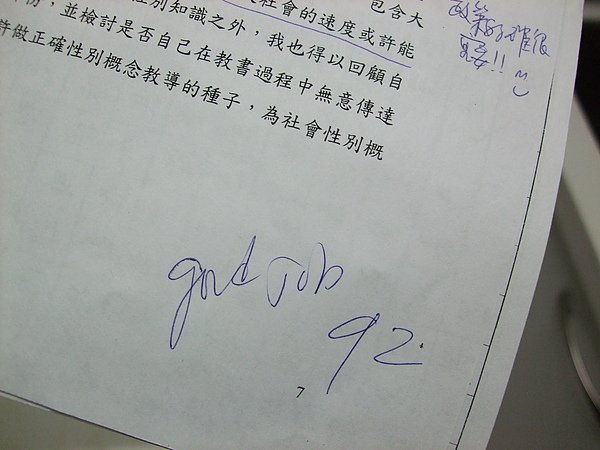 包含大
社會的速度或許能
性別知識之外，我也得以回顧自
，並檢討是否自己在教書過程中無意傳達
許做正確性別概念教導的種子，為社會性別概
政策的推很
重要!!
good Job
92
7